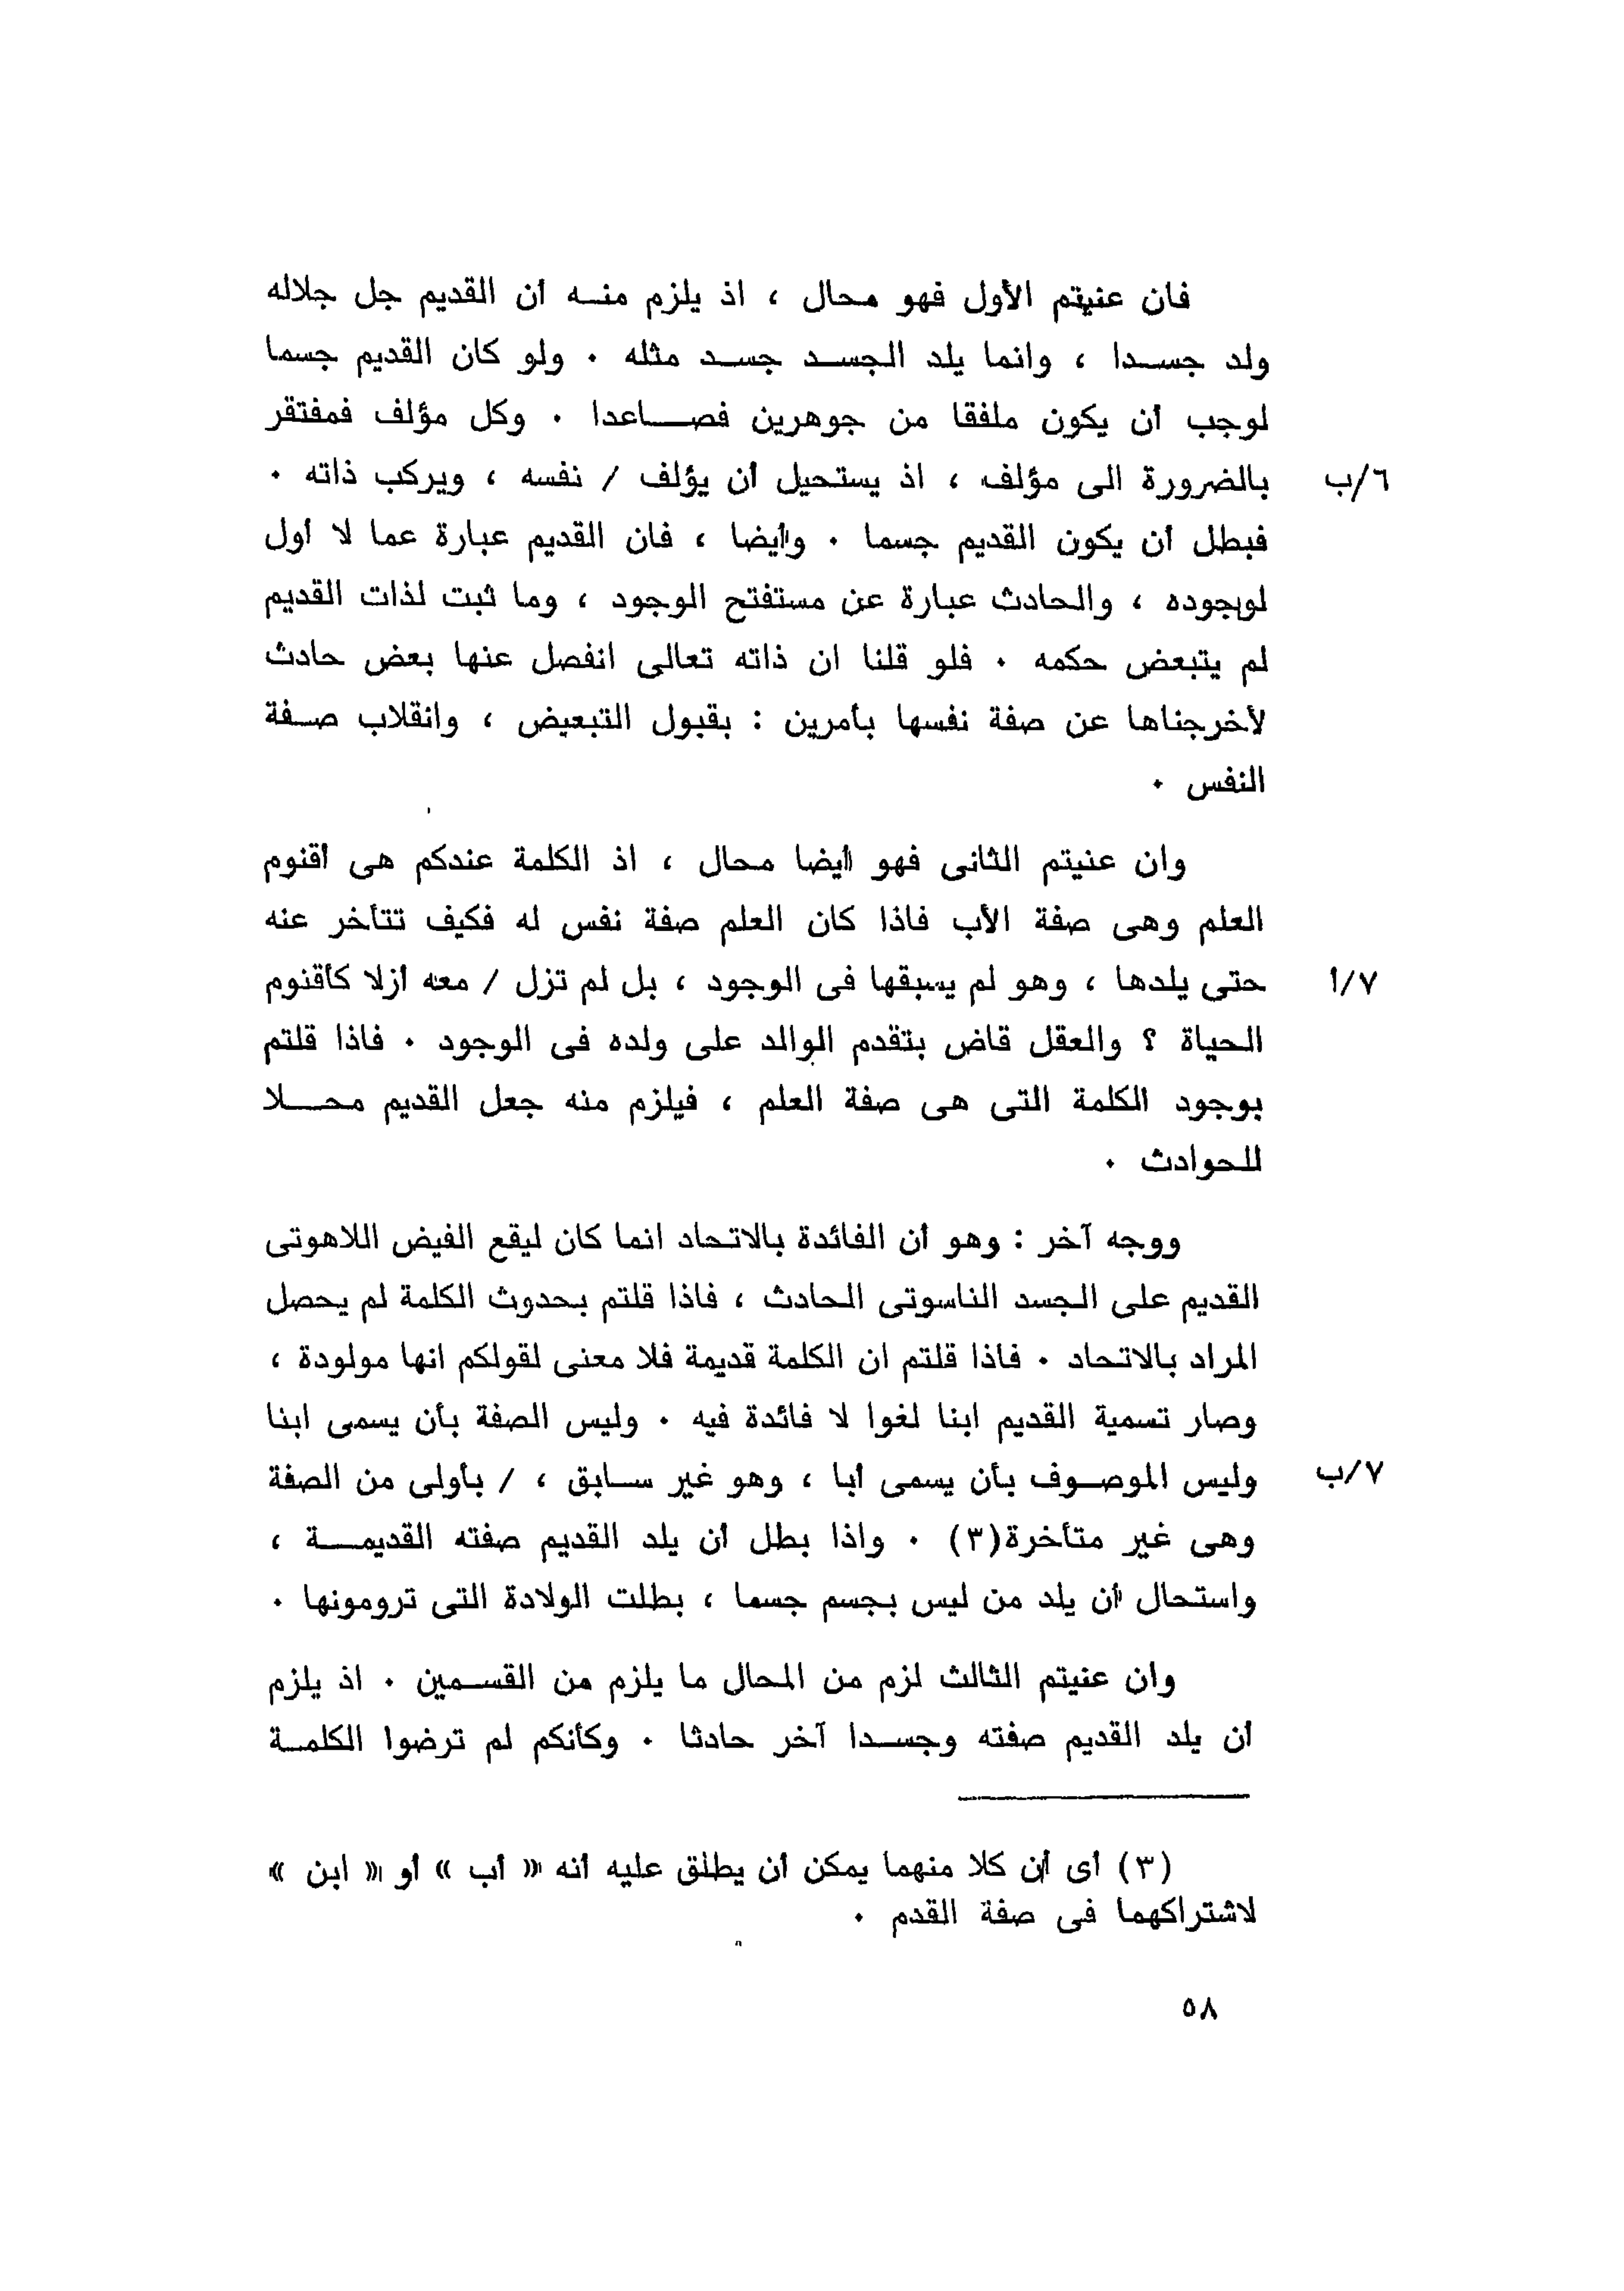 فان عنيتم الأول فهو محال ، اذ يلزم منه أن القديم جل جلاله
ولد جسدا ، وانما يلد الجسد جسد مثله . ولو كان القديم جسما
لوجب أن يكون ملفقا من جوهرين فصاعدا . وكل مؤلف فمفتقر
بالضرورة الى مؤلف ، اذ يستحيل أن يؤلف / نفسه ، ويركب ذاته . ٦/ب
فبطل أن يكون القديم جسما . وأيضا ، فان القديم عبارة عما لا أول
لوجوده ، والحادث عبارة عن مستفتح الوجود ، وما ثبت لذات القديم
لم يتبعض حكمه . فلو قلنا ان ذاته تعالى انفصل عنها بعض حادث
لأخرجناها عن صفة نفسها بأمرين : بقبول التبعيض ، وانقلاب صفة
النفس .
وان عنيتم الثانى فهو أيضا محال ، اذ الكلمة عندكم هى أقنوم
العلم وهى صفة الأب فاذا كان العلم صفة نفس له فكيف تتأخر عنه
حتى يلدها ، وهو لم يسبقها فى الوجود ، بل لم تزل / معه أزلا كأقنوم ٧/أ
الحياة ؟ والعقل قاض بتقدم الوالد على ولده فى الوجود . فاذا قلتم
بوجود الكلمة التى هى صفة العلم ، فيلزم منه جعل القديم محلا
للحوادث .
ووجه آخر : وهو أن الفائدة بالاتحاد انما كان ليقع الفيض اللاهوتى
القديم على الجسد الناسوتى الحادث ، فاذا قلتم بحدوث الكلمة لم يحصل
المراد بالاتحاد . فاذا قلتم ان الكلمة قديمة فلا معنى لقولكم انها مولودة ،
وصار تسمية القديم ابنا لغوا لا فائدة فيه . وليس الصفة بأن يسمى ابنا
وليس الموصوف بأن يسمى أبا ، وهو غير سابق ، / بأولى من الصفة ٧/ب
وهى غير متأخرة(٣) . واذا بطل أن يلد القديم صفته القديمة ،
واستحال أن يلد من ليس بجسم جسما ، بطلت الولادة التى ترومونها .
وان عنيتم الثالث لزم من المحال ما يلزم من القسمين . اذ يلزم
أن يلد القديم صفته وجسدا آخر حادثا . وكأنكم لم ترضوا الكلمة
(٣) أى أن كلا منهما يمكن أن يطلق عليه أنه « أب » أو « ابن »
لاشتراكهما فى صفة القدم .
٥٨